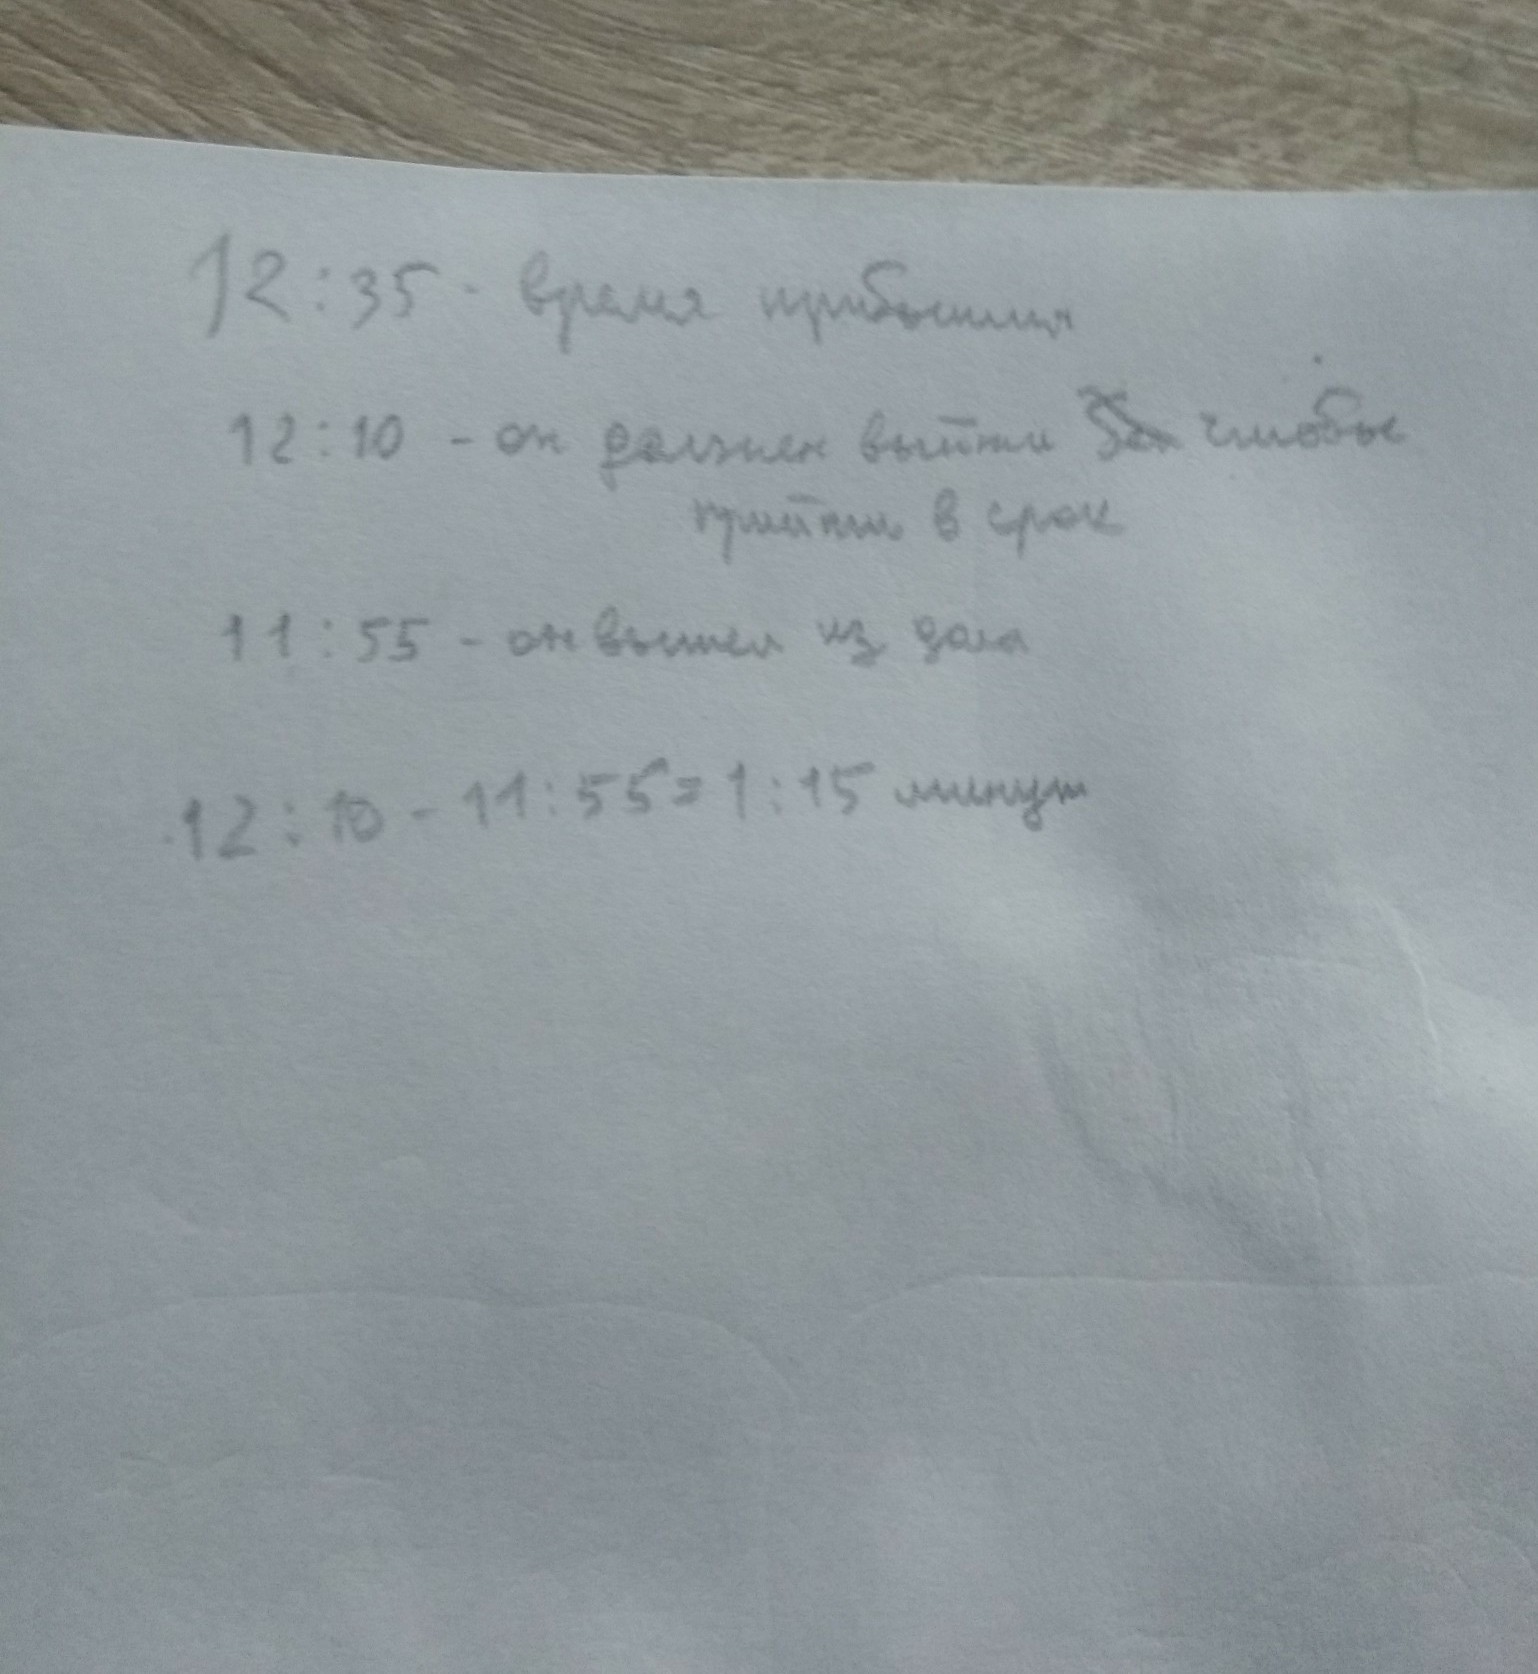 12:35 - время прибытия
12:10 - он должен выйти чтобы
прийти в срок
11:55 - он вышел из дома
12:10 - 11:55 = 1:15 минут